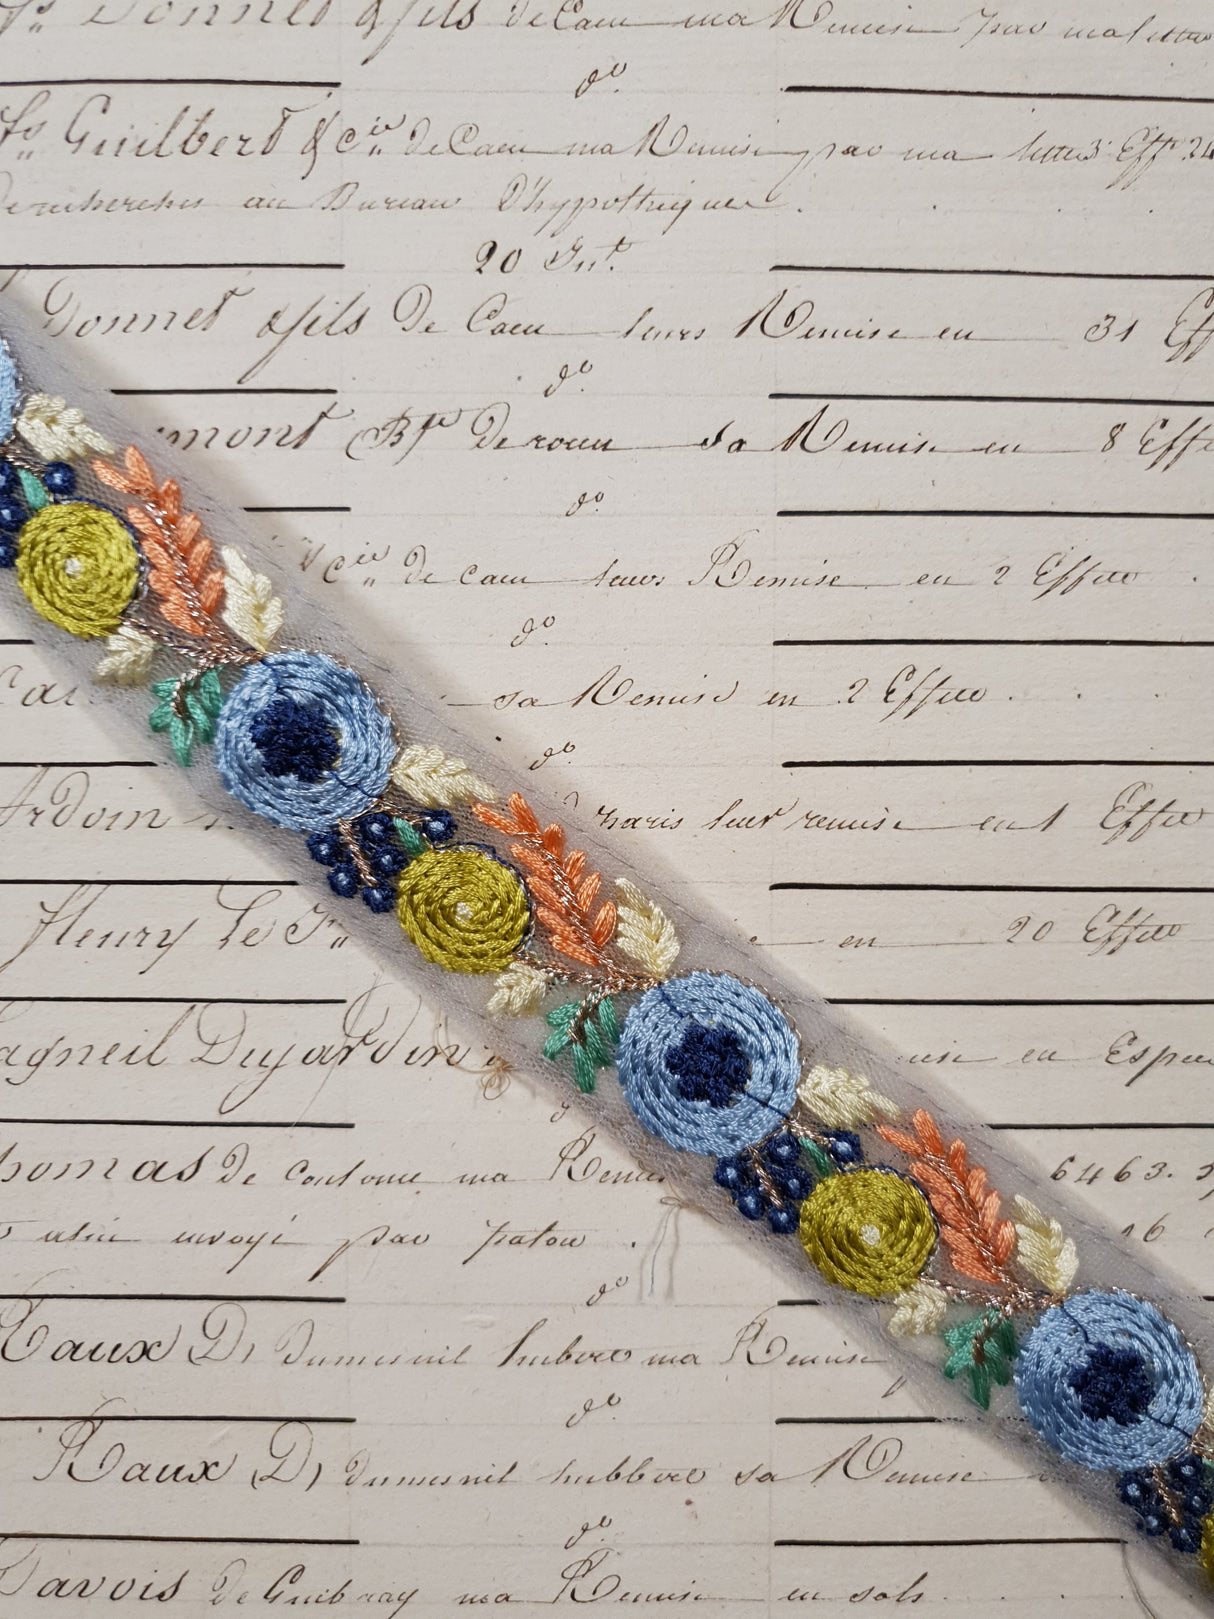 Donnet & fils de Caen ma Remise par ma lettre
d°.
Guilbert & Cie de Caen ma Remise par ma lettre 3 Effts 24
recherches au Bureau D'hypothèques.
20 Jnt.
Donnet & fils De Caen leurs Remise en 31 Eff
d°.
mont Bte De rouen sa Remise en 8 Effe
d°.
Cie de Caen leurs Remise en 2 Effets
d°.
sa Remise en 2 Effets
d°.
Ardoin paris leur remise en 1 Effet
fleury Le Jn en 20 Effets
agneil Dujardin en Espec
d°
homas De Coutance ma Remis 6463.
envoyé par patou. 16
d°.
Raux D, Dumesnil hubert ma Remise
d°.
Raux D, dumesnil hubbert sa Remise
d°.
Davois De Guibray ma Remise en sols